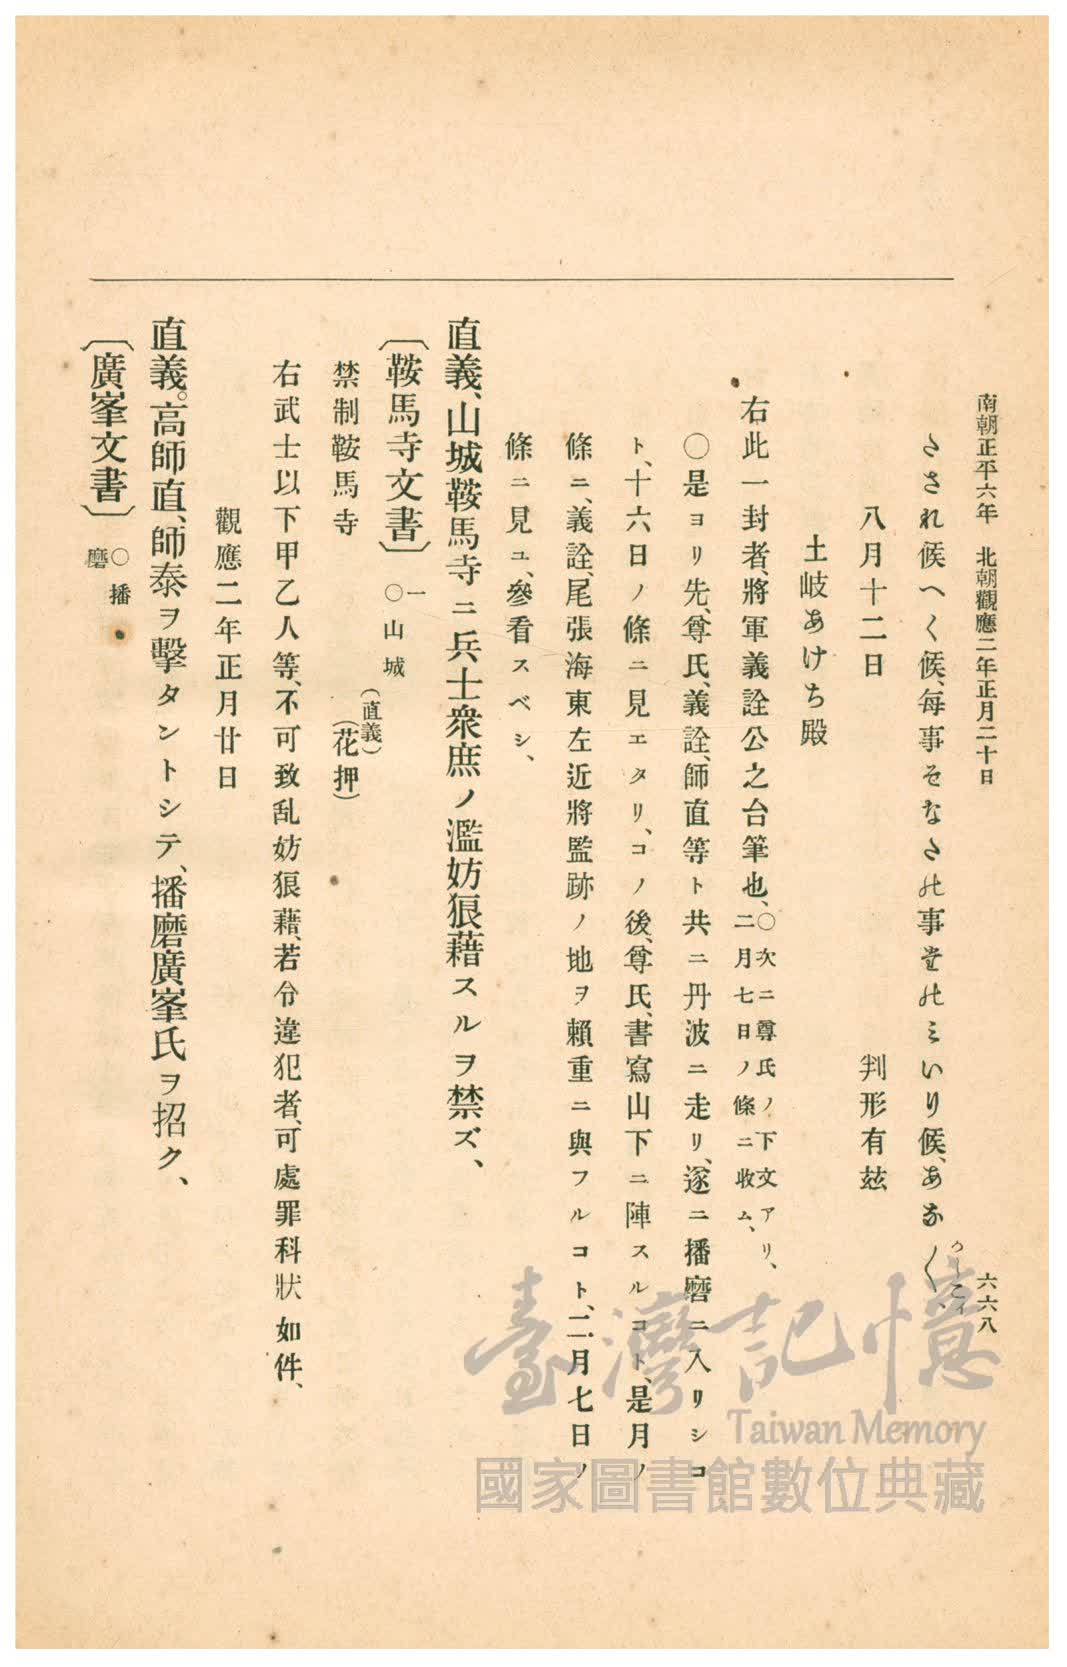 南朝正平六年　北朝觀應二年正月二十日
六六八
さされ候へく候、毎事そなたの事堂のミいり候、あな〱、
八月十二日　判形有玆
土岐あけち殿
右此一封者、將軍義詮公之台筆也、〇次ニ尊氏ノ下文アリ、二月七日ノ條ニ收ム、
〇是ヨリ先、尊氏、義詮、師直等ト共ニ丹波ニ走リ、遂ニ播磨ニ入リシコ
ト、十六日ノ條ニ見エタリ、コノ後、尊氏、書寫山下ニ陣スルコト、是月ノ
條ニ、義詮、尾張海東左近將監跡ノ地ヲ賴重ニ與フルコト、二月七日ノ
條ニ見ユ、參看スベシ、
直義、山城鞍馬寺ニ兵士衆庶ノ濫妨狼藉スルヲ禁ズ、
〔鞍馬寺文書〕 一 〇山城
禁制鞍馬寺　(直義)(花押)
右武士以下甲乙人等、不可致乱妨狼藉、若令違犯者、可處罪科狀如件、
觀應二年正月廿日
直義。高師直、師泰ヲ擊タントシテ、播磨廣峯氏ヲ招ク、
〔廣峯文書〕 〇播磨
臺灣記憶
Taiwan Memory
國家圖書館數位典藏